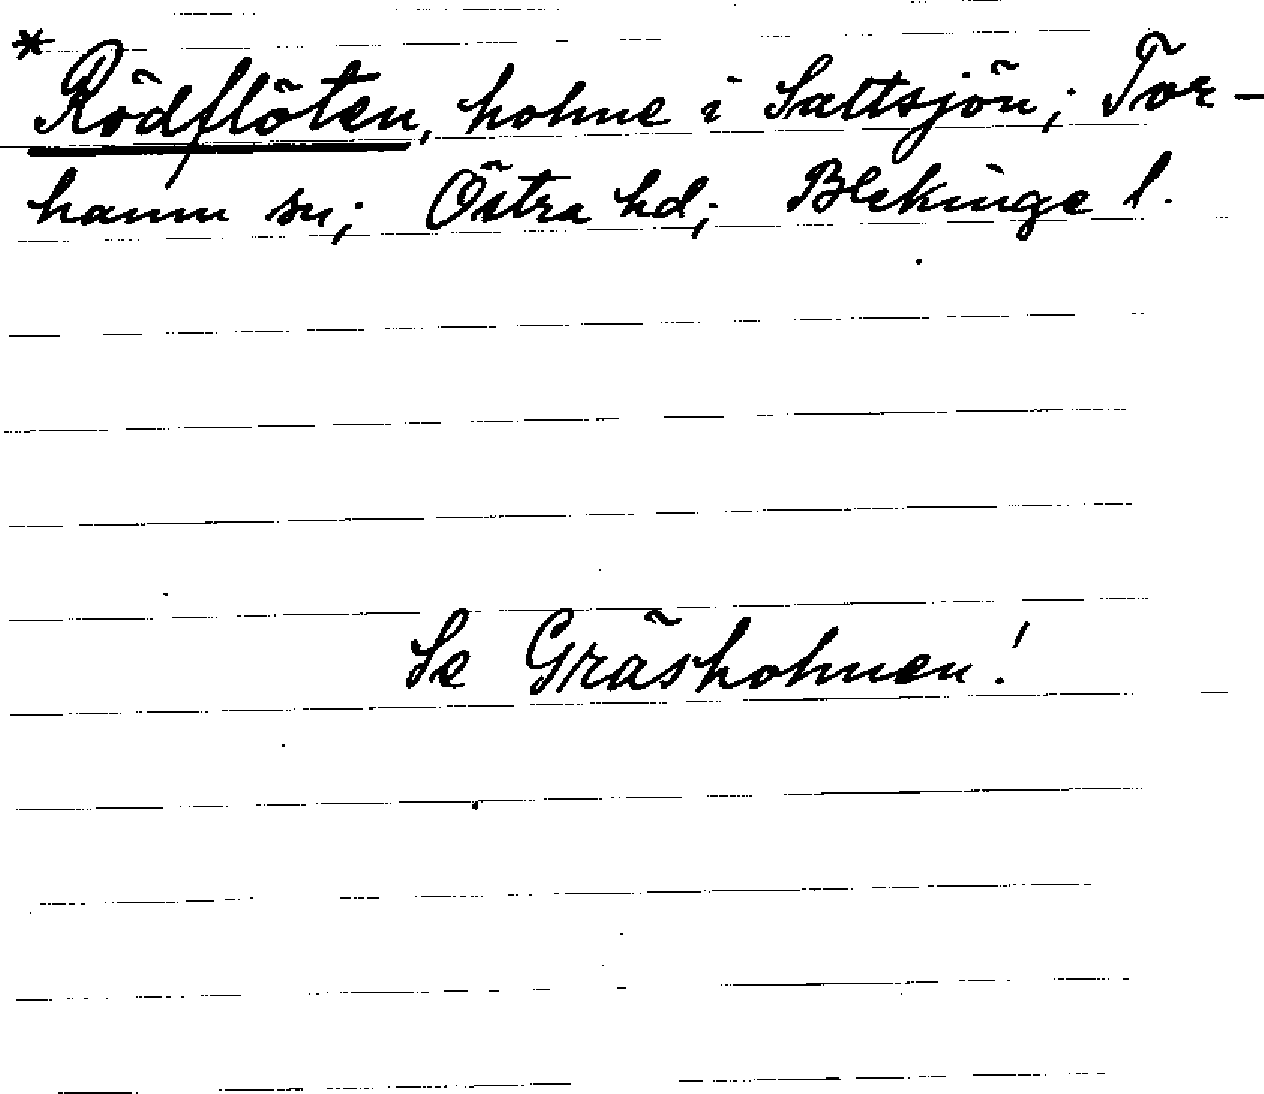 * Rödflöten, holme i Saltsjön; Tor-
hamn sn; Östra hd; Blekinge l.
Se Gräsholmen!